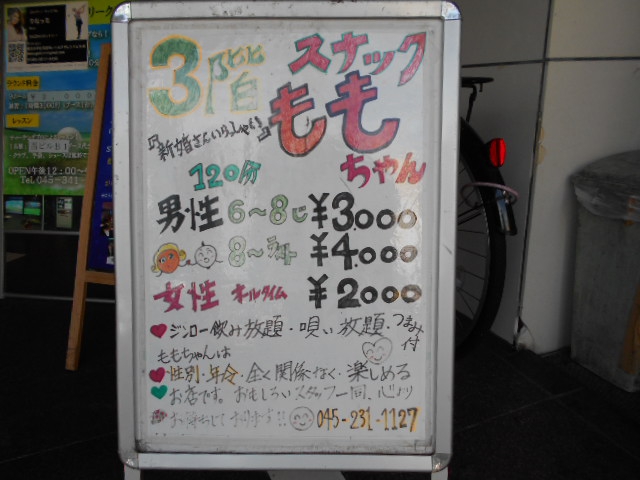 3階 スナック
ももちゃん
『新婚さんいらっしゃい』
120分
男性 6～8じ ¥3.000
8～ラスト ¥4.000
女性 オールタイム ¥2000
ジンロー飲み放題・唄い放題・つまみ付
ももちゃんは
性別・年令・全く関係なく・楽しめる
お店です。おもしろいスタッフ一同、心より
お待ちしております!! 045-231-1127
ラウンド料金
レッスン
OPEN午後12:00～
Tel 045-341